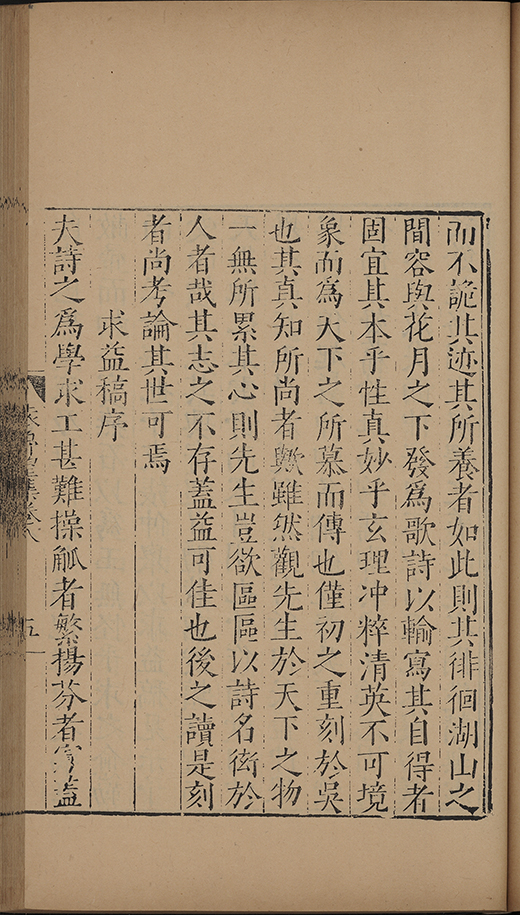 而不詭其迹其所養者如此則其徘徊湖山之
間容與花月之下發爲歌詩以輸寫其自得者
固宜其本乎性真妙乎玄理冲粹清英不可境
象而爲天下之所慕而傳也僅初之重刻於吳
也其真知所尚者歟雖然觀先生於天下之物
一無所累其心則先生豈欲區區以詩名衒於
人者哉其志之不存蓋益可佳也後之讀是刻
者尚考論其世可焉
求益稿序
夫詩之爲學求工甚難操觚者繁揚芬者寡蓋
集卷八
五